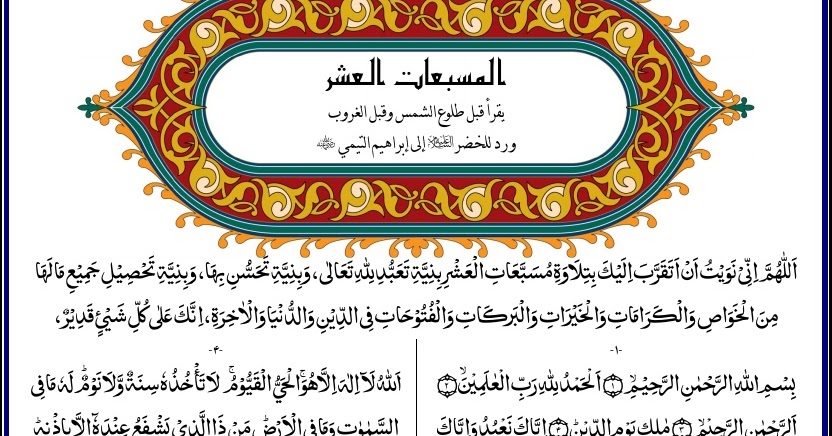 المسبعات العشر
يقرأ قبل طلوع الشمس وقبل الغروب
ورد للخضر عليه السلام إلى إبراهيم التيمي رضي الله عنه
اَللّٰهُمَّ اِنِّي نَوَيْتُ اَنْ اَتَقَرَّبَ اِلَيْكَ بِتِلَاوَةِ مُسَبَّعَاتِ الْعَشْرِ بِنِيَّةِ تَعَبُّدٍ لِلّٰهِ تَعَالٰى، وَبِنِيَّةِ تَحَسُّنٍ بِهَا، وَبِنِيَّةِ تَحْصِيلِ جَمِيْعِ مَا لَهَا
مِنَ الْخَوَاصِ وَالْكَرَامَاتِ وَالْخَيْرَاتِ وَالْبَرَكَاتِ وَالْفُتُوْحَاتِ فِي الدِّيْنِ وَالدُّنْيَا وَالْاٰخِرَةِ، اِنَّكَ عَلٰى كُلِّ شَيْئٍ قَدِيْرٌ،
-١-
بِسْمِ اللهِ الرَّحْمٰنِ الرَّحِيْمِ ۝١ اَلْحَمْدُ لِلّٰهِ رَبِّ الْعٰلَمِيْنَ ۝٢
اَلرَّحْمٰنِ الرَّحِيْمِ ۝٣ مٰلِكِ يَوْمِ الدِّيْنِ ۝٤ اِيَّاكَ نَعْبُدُ وَاِيَّاكَ
-٤-
اَللهُ لَا اِلٰهَ اِلَّا هُوَ الْحَيُّ الْقَيُّوْمُ لَا تَأْخُذُهُ سِنَةٌ وَّلَا نَوْمٌ لَهُ مَا فِي
السَّمٰوٰتِ وَمَا فِي الْاَرْضِ مَنْ ذَا الَّذِيْ يَشْفَعُ عِنْدَهٗ اِلَّا بِاِذْنِهٖ